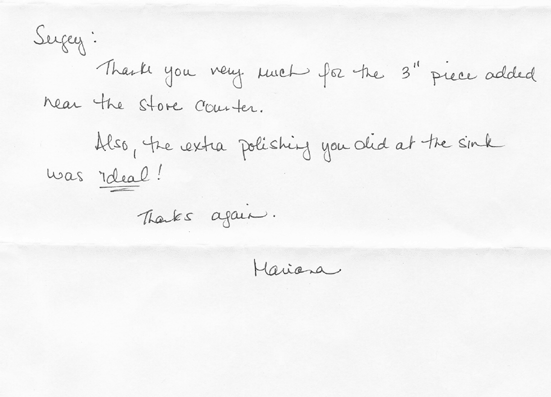 Sergey:
Thank you very much for the 3" piece added
near the store counter.
Also, the extra polishing you did at the sink
was ideal!
Thanks again.
Mariana